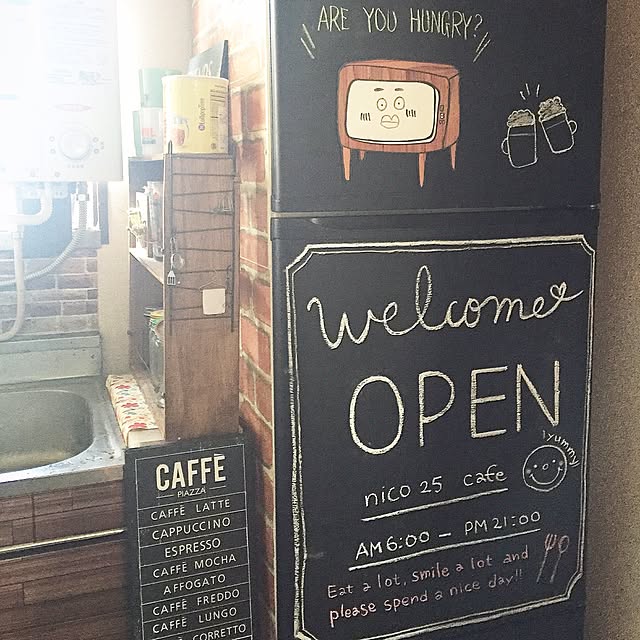 ARE YOU HUNGRY?
welcome
OPEN
yummy
nico 25 cafe
AM 6:00 - PM 21:00
Eat a lot, smile a lot and
please spend a nice day!!
CAFFÈ
PIAZZA
CAFFÈ LATTE
CAPPUCCINO
ESPRESSO
CAFFÈ MOCHA
AFFOGATO
CAFFÈ FREDDO
CAFFÈ LUNGO
CORRETTO